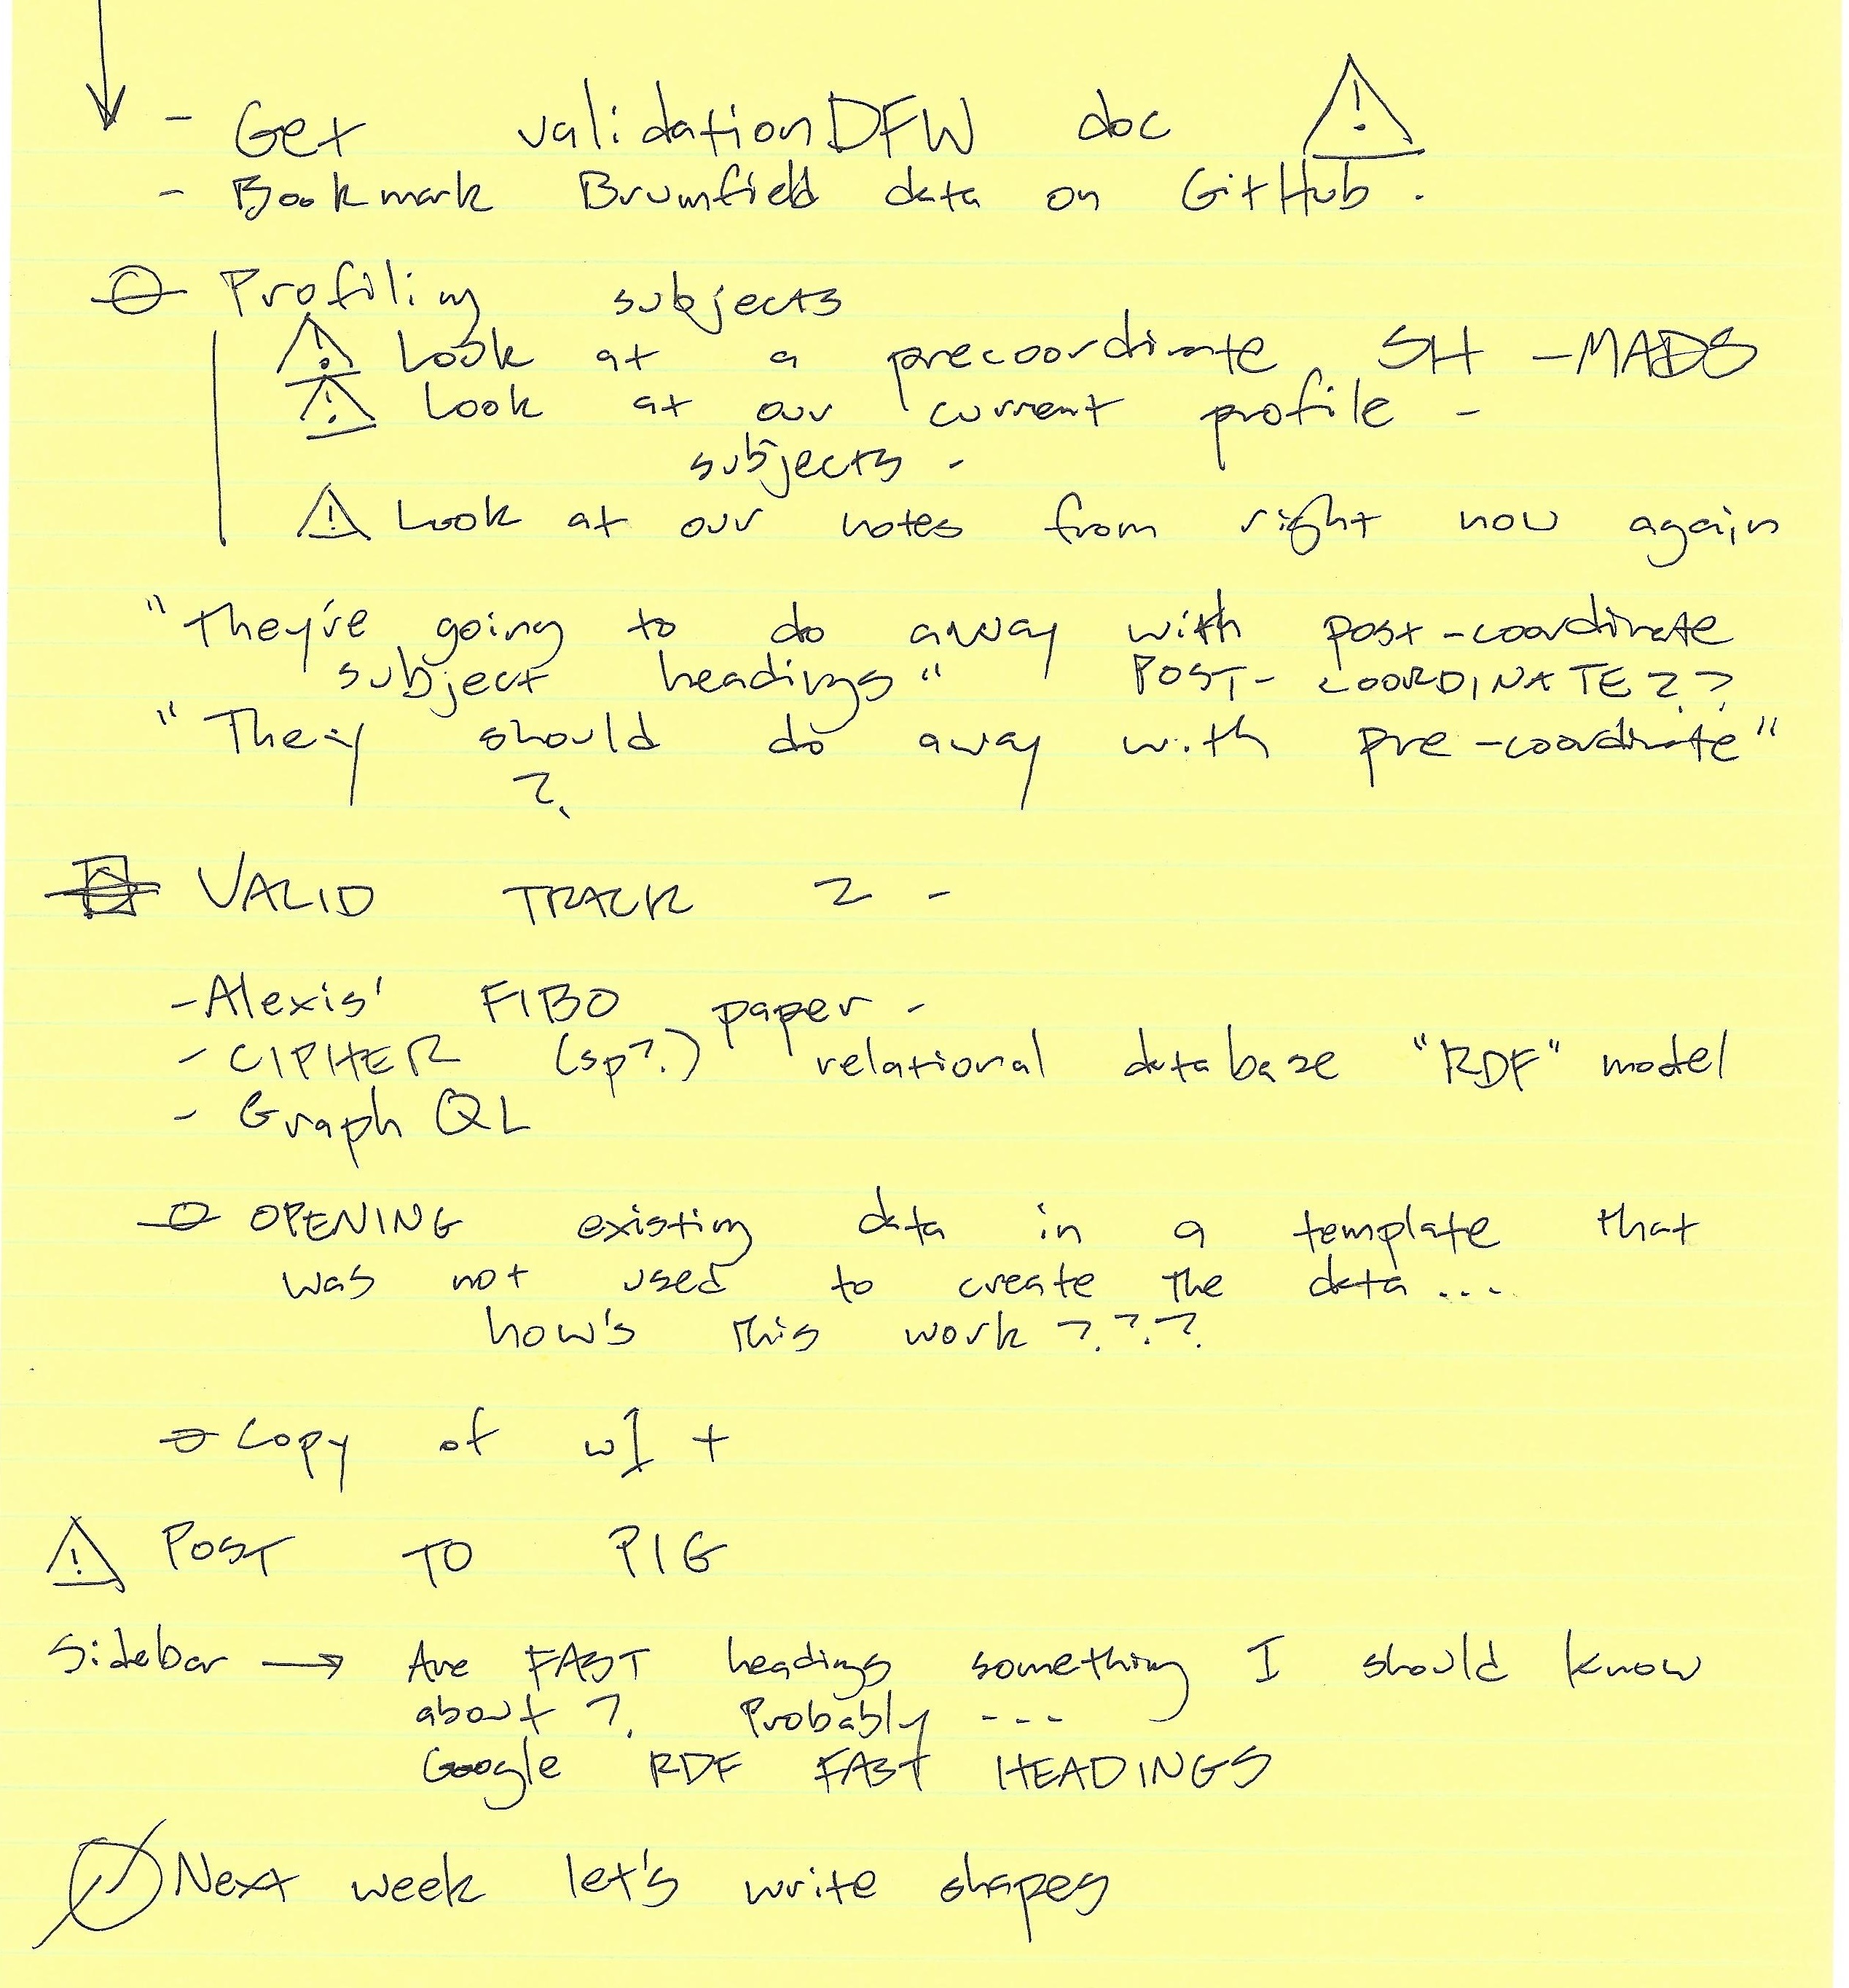 - Get validationDFW doc
- Bookmark Brumfield data on GitHub.
Profiling subjects
Look at a precoordinate SH - MADS
Look at our current profile -
subjects -
Look at our notes from right now again
"They're going to do away with post-coordinate
subject headings" POST-COORDINATE??
"They should do away with pre-coordinate"
?
VALID TRACK 2 -
- Alexis' FIBO paper -
- CIPHER (sp?) relational database "RDF" model
- Graph QL
OPENING existing data in a template that
was not used to create the data...
how's this work ???
Copy of +
POST TO PIG
Sidebar → Are FAST headings something I should know
about? Probably ---
Google RDF FAST HEADINGS
Next week let's write shapes